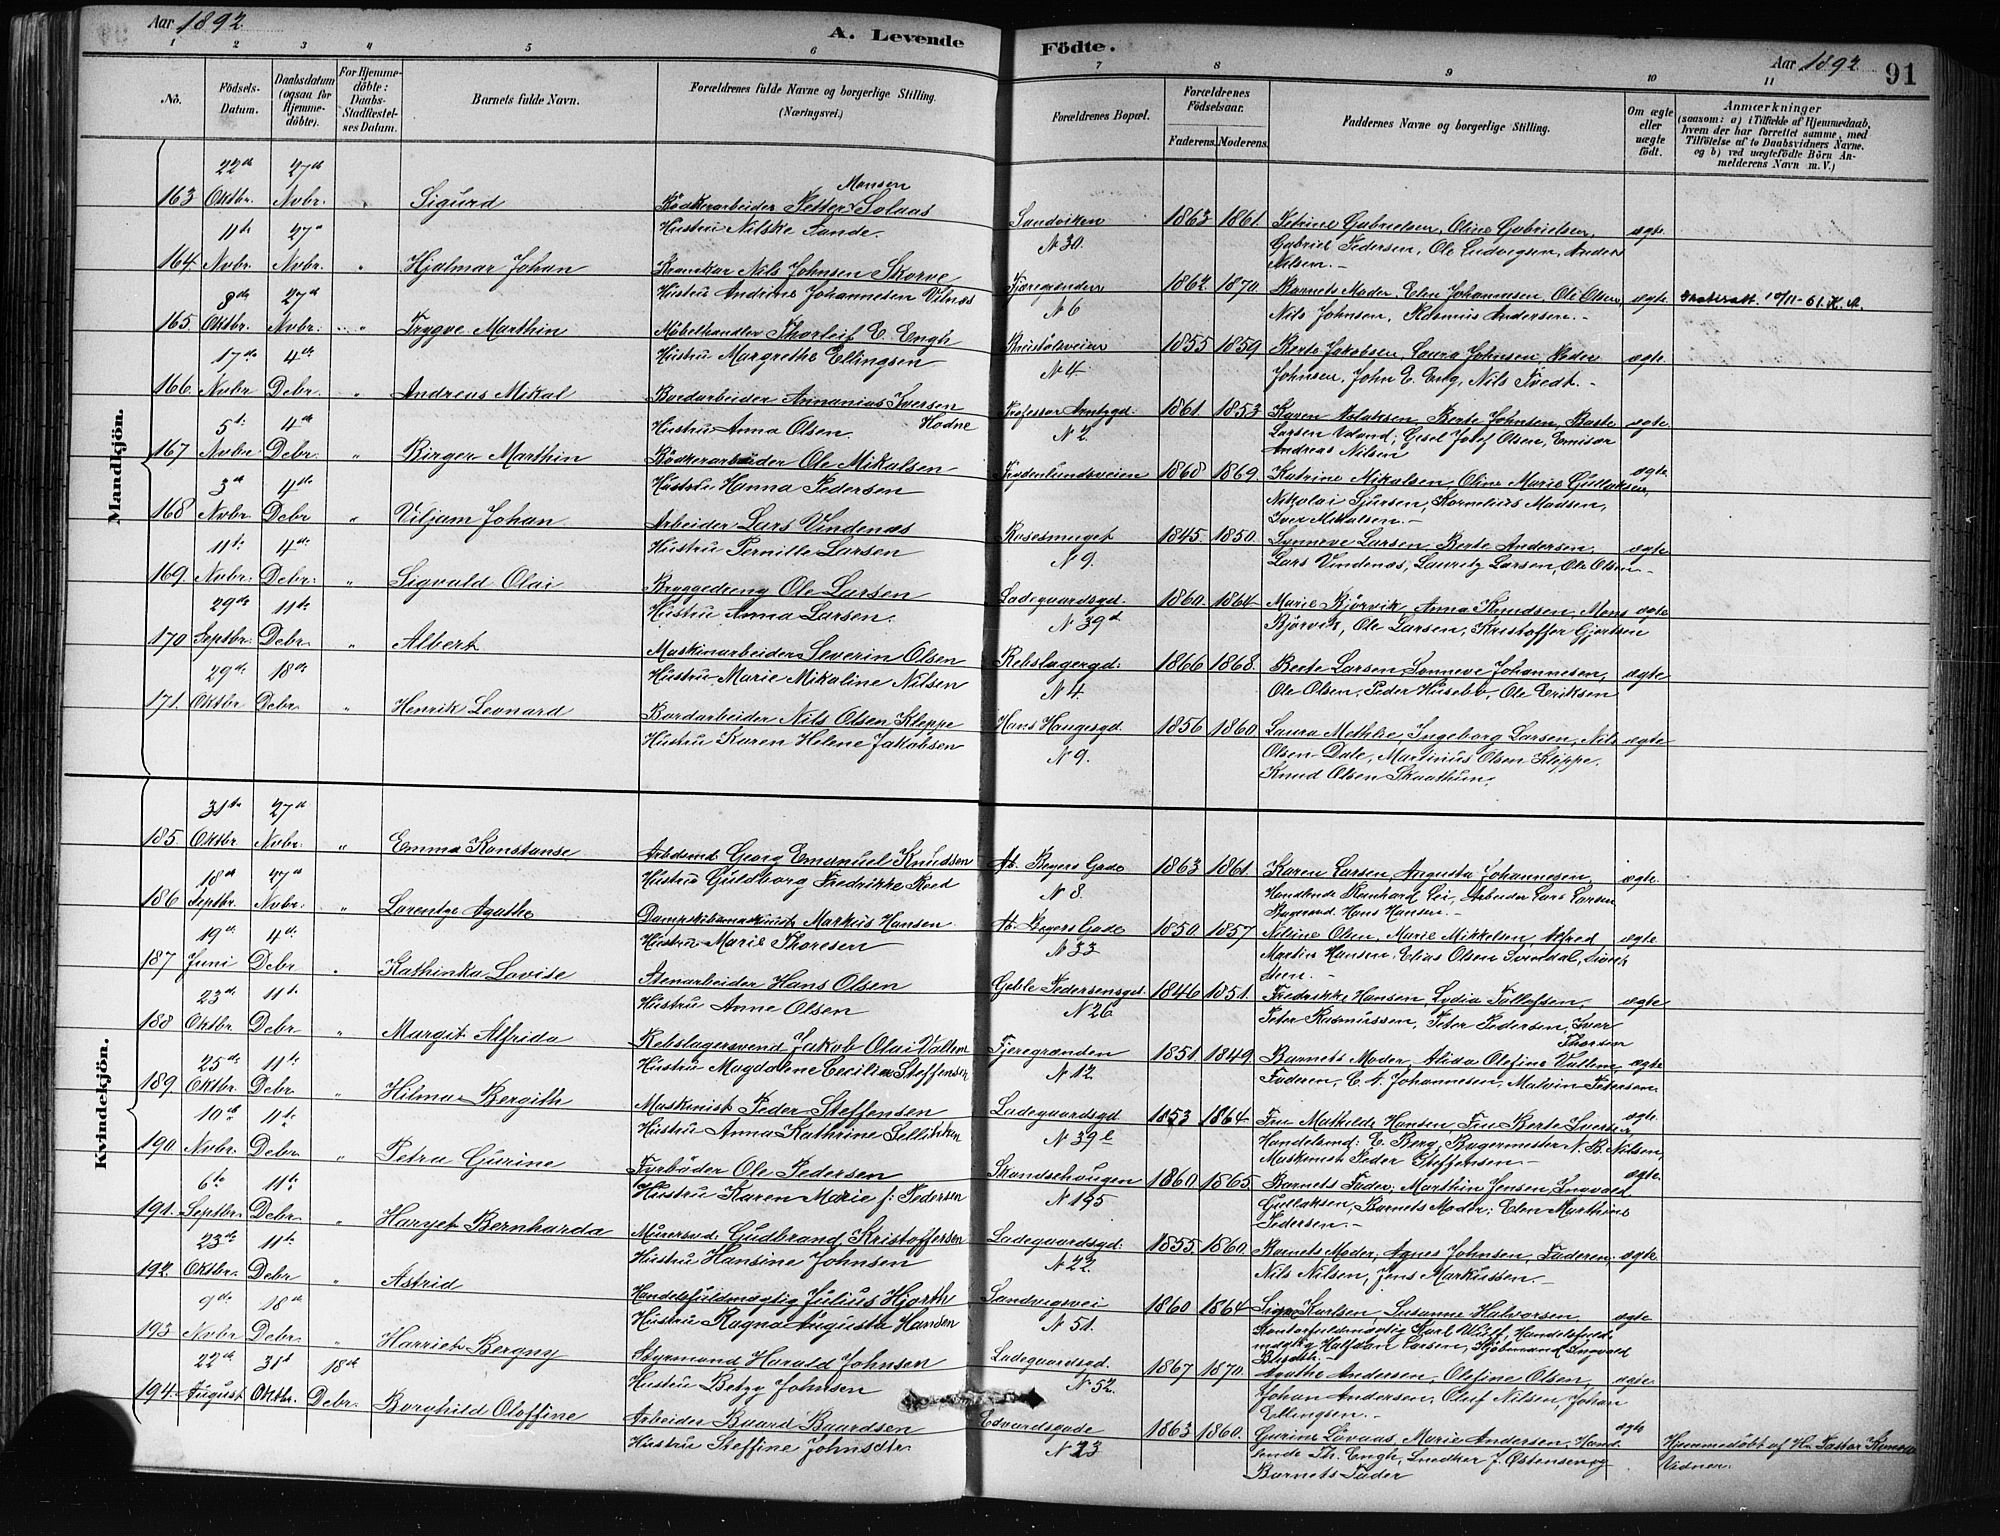 Aar 1892.
A. Levende Födte.
Aar 1892
91
1 2 3 4 5 6 7 8 9 10 11
No.
Födsels-Datum.
Daabsdatum (ogsaa for Hjemme-döbte).
For Hjemme-döbte: Daabs-Stadfæstel-ses Datum.
Barnets fulde Navn.
Forældrenes fulde Navne og borgerlige Stilling. (Næringsvei.)
Forældrenes Bopæl.
Forældrenes Födselsaar.
Faderens. Moderens.
Faddernes Navne og borgerlige Stilling.
Om ægte eller uægte födt.
Anmærkninger (saasom: a) i Tilfælde af Hjemmedaab, hvem der har forrettet samme, med Tilföielse af to Daabsvidners Navne. og b) ved uægtefödte Börn An-melderens Navn m. V.)
Mandkjön.
163 22de Oktbr. 27de Nvbr. " Sigurd Bödkerarbeider Petter Monsen Solaas
Hustru Nilske Tande.
Sandviken N 30. 1863 1861. Petrine Gabrielsen, Oline Gabrielsen,
Gabriel Pedersen, Ole Ludvigsen, Anders
Nilsen. - ægte
164. 11te Nvbr. 27de Nvbr. " Hjalmar Johan Kranskar Nils Johnsen Skorve
Hustru Andrine Johannesen Vilnæs
Fjæregrænden N 6 1862. 1870. Barnets Moder, Elen Johannesen, Ole Olsen
Nils Johnsen, Rasmus Andersen. - ægte 10/11-61. K. A.
165. 8de Oktbr. 27de Nvbr. " Trygve Marthin Möbelhandler Thorleif E. Engh
Hustru Margrethe Ellingsen
N 4 1855 1859 Berte Jakobsen, Laura Johnsen, Peder
Johnsen, John E. Eng, Nils Tvedt. - ægte
166. 17de Nvbr 4de Debr. " Andreas Mikal Bordarbeider Annanias Iversen Hodne
Hustru Anna Olsen.
Professor N 2. 1861. 1853 Karen Aslaksen, Berte Johnsen, Baste
Larsen Josef Olsen,
Andreas Nilsen ægte
167 5te Nvbr. 4de Debr. " Birger Marthin Bödkerarbeider Ole Mikalsen
Hustru Hanna Pedersen
Frydenlundsveien 1868 1869. Katrine Mikalsen, Oline Marie Gullaksen,
Nikolai Sjursen, Kornelius Madsen,
Iver Mikalsen. - ægte
168. 3de Nvbr. 4de Debr " Viljam Johan Arbeider Lars Vindenæs
Hustru Pernille Larsen
Rosesmuget N 9. 1845 1850. Synneve Larsen, Berte Andersen,
Lars Vindenæs, Lauritz Larsen, Ole Olsen - ægte
169. 11te Nvbr. 4de Debr. " Sigvald Olai Bryggedreng Ole Larsen
Hustru Anna Larsen.
Ladegaardsgd. N 39d 1860. 1864. Marie Bjørvik, Anna Knudsen, Mons
Bjørvik, Ole Larsen, Kristoffer Gjertsen ægte
170 29de Septbr. 11te Debr. " Albert Maskinarbeider Severin Olsen
Hustru Marie Mikaline Nilsen
Rebslagergd. N 4. 1866 1868. Berte Larsen, Synneve Johannesen,
Ole Olsen, Peder Husebö, Ole Eriksen ægte
171. 29de Oktbr 18de Debr. " Henrik Leonard Bordarbeider Nils Olsen Kleppe
Hustru Karen Helene Jakobsen
Hans Haugesgd. N 9. 1856 1860. Laura Methlie, Ingeborg Larsen, Nils
Olsen Dale, Martinus Olsen Kleppe,
Knud Olsen Skaathun. ægte
Kvindekjön.
185. 31te Oktbr 27de Nvbr. " Emma Konstanse Arbdsmd Georg Emanuel Knudsen
Hustru Guldborg Fredrikke Roed
Ab. Beyers Gade N 8. 1863 1861. Karen Larsen, Augusta Johannesen,
Handlende Reinhard Lei, Arbeider Lars Larsen
Bagersvd. Hans Hansen. - ægte.
186 18de Septbr. 27de Nvbr. " Lorentze Agathe Dampskibsmaskinist Markus Hansen
Hustru Marie Thoresen
Ab. Beyers Gade N 33 1850. 1857 Nilsine Olsen, Marie Mikkelsen, Alfred
Martin Hansen, Elias Olsen ægte
187 19de Juni 4de Debr " Kathinka Lovise Stenarbeider Hans Olsen
Hustru Anne Olsen
Geble Pedersensgd. N 26 1846 1851. Fredrikke Hansen, Lydia Tollefsen,
Peter Rasmussen, Peter Pedersen, Iver
Thorsen ægte
188 23de Oktbr. 11te Debr. " Margit Alfrida Rebslagersvend Jakob Olai Vallem
Hustru Magdalene Cecilia Steffensen
Fjeregrænden N 12. 1851. 1849. Barnets Moder, Alida Olefine Vallem,
Faderen, C. A. Johannesen, Malvin Petersen. ægte
189. 25de Oktbr. 11te Debr. " Hilma Bergith Maskinist Peder Steffensen
Hustru Anna Kathrine Sellikken
Ladegaardsgd. N 39 1853 1864. Fru Mathilde Hansen, Fru Berte Iversen,
Handelsmd: E. Berg, Bagermester N. B. Nilsen,
Maskinist Peder Steffensen. - ægte
190. 10de Nvbr. 11te Debr. " Petra Gurine Forböder Ole Pedersen
Hustru Karen Marie f: Pedersen
Skandsehaugen N 195 1860 1865. Barnets Fader, Marthin Jensen, Ingvald
Gullaksen, Barnets Moder, Elen Marthine
Pedersen. - ægte.
191. 6te Septbr. 11te Debr. " Haryet Bernharda Murersvd. Gudbrand Kristoffersen
Hustru Hansine Johnsen
Ladegaardsgd. N 22 1855. 1860. Barnets Moder, Agnes Johnsen, Faderen,
Nils Nilsen, Jens Markussen. - ægte.
192. 23de Oktbr. 11te Debr " Astrid Handelsfuldmægtig Julius Hjorth
Hustru Ragna Augusta Hansen
Sandvigsvei N 51. 1860 1864. Signe Karlsen, Susanne Halvorsen,
Kontorfuldmægtig Karl Wulf, Handelsfuld
mægtig Halfdan Larsen, Kjöbmand Ingvald ægte
193 9de Nvbr 18de Debr. " Harriet Bergny Styrmand Harald Johnsen
Hustru Betzy Johnsen
Ladegaardsgd. N 52. 1867 1870. Agathe Andersen, Olefine Olsen,
Johan Andersen, Oluf Nilsen, Johan
Ellingsen. - ægte.
194. 22de August 31te Oktbr. 18de Debr. Borghild Oloffine Arbeider Baard Baardsen
Hustru Steffine Johnsdtr.
Edvardsgade N 23 1863 1860. Gurine Lovaas, Marie Andersen, Hand
lende Th. Engh, Snedker J. Østensen og
Barnets Fader ægte Hjemmedöbt af Hr. Pastor
Vidner.